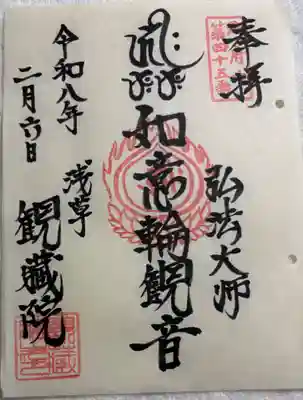 奉拝
第四十五番
弘法大師
如意輪觀音
浅草
觀藏院
令和八年
二月六日